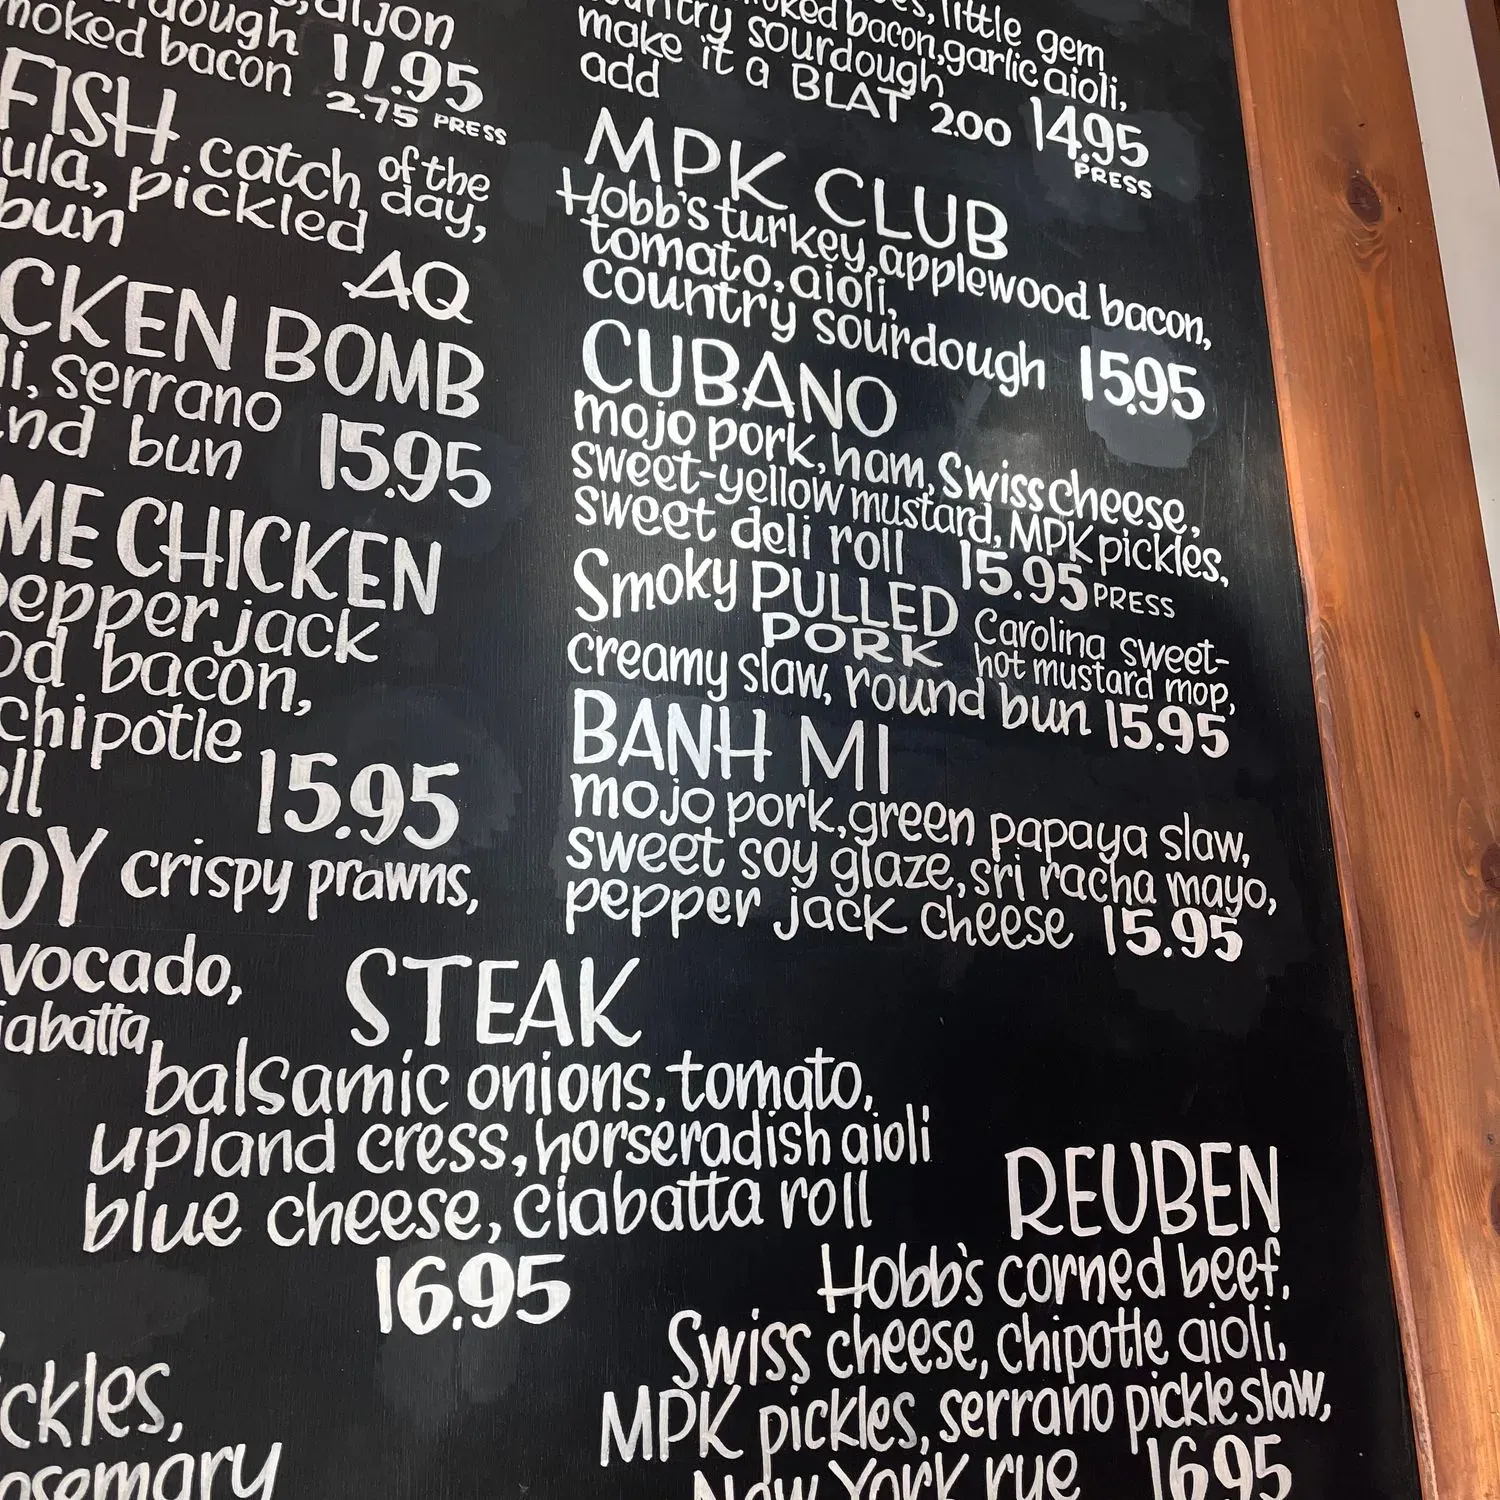 dijon
smoked bacon 11.95
2.75 PRESS
FISH catch of the
day,
pickled
bun
AQ
BOMB
serrano
bun 15.95
CHICKEN
pepper jack
bacon,
chipotle
15.95
crispy prawns,
little gem
bacon, garlic aioli,
country sourdough
make it a BLAT
add 2.00 14.95
PRESS
MPK CLUB
Hobb's turkey, applewood bacon,
tomato, aioli,
country sourdough 15.95
CUBANO
mojo pork, ham, Swiss cheese,
sweet-yellow mustard, MPK pickles,
sweet deli roll 15.95 PRESS
Smoky PULLED
PORK Carolina sweet-
hot mustard mop,
creamy slaw, round bun 15.95
BANH MI
mojo pork, green papaya slaw,
sweet soy glaze, sri racha mayo,
pepper jack cheese 15.95
STEAK
balsamic onions, tomato,
upland cress, horseradish aioli
blue cheese, ciabatta roll
16.95
REUBEN
Hobb's corned beef,
Swiss cheese, chipotle aioli,
MPK pickles, serrano pickle slaw,
New York rye 16.95